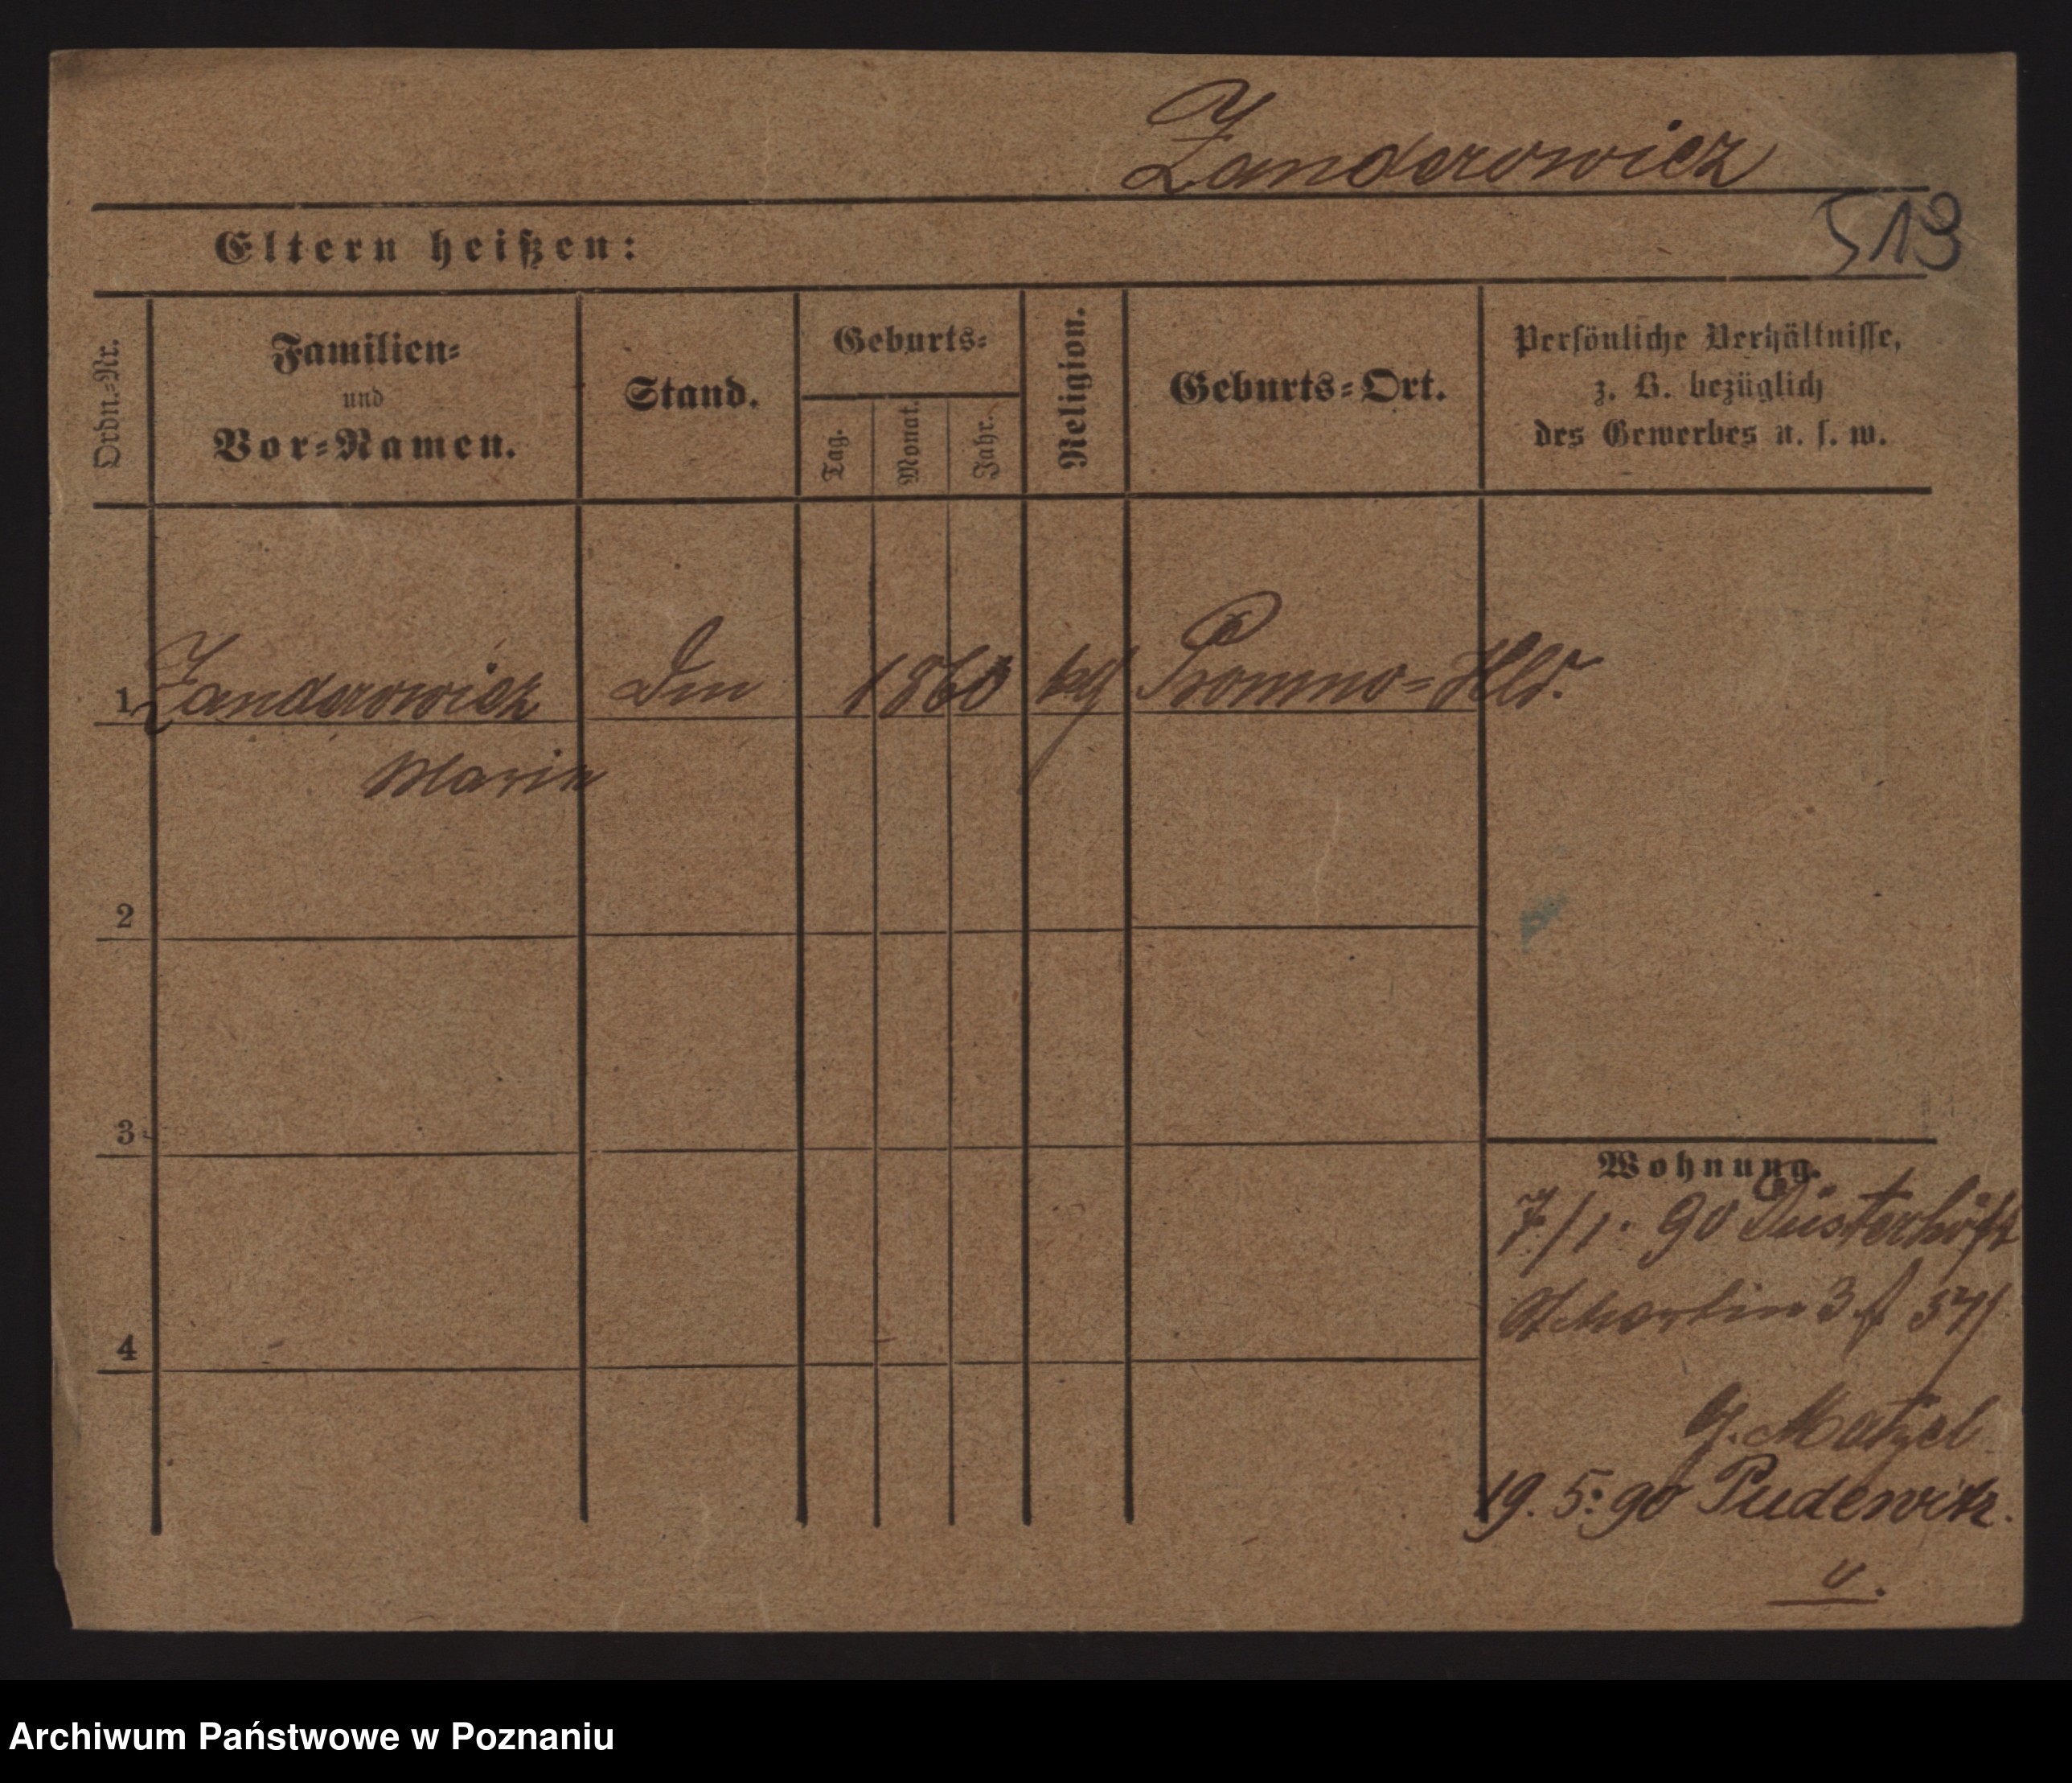 Zanderowicz
513
Eltern heißen:
Ordn.-Nr.
Familien-
und
Vor-Namen.
Stand.
Geburts-
Tag.
Monat.
Jahr.
Religion.
Geburts-Ort.
Persönliche Verhältnisse,
z. B. bezüglich
des Gewerbes u. s. w.
1 Zanderowicz 1860 Promno-Hld.
Marie
2
3
4
Wohnung.
7/1. 90 Düsterhöft
St Martin 3
G. Matzel
19. 5. 90 Pudewitz.
v.
Archiwum Państwowe w Poznaniu